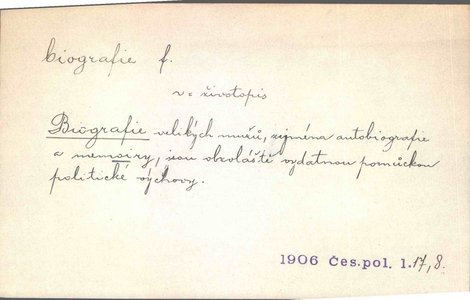 biografie f.
v: životopis
Biografie velikých mužů, zejména autobiografie
a memoiry, jsou obzvláště vydatnou pomůckou
politické výchovy.
1906 Čes.pol. 1.17,8.